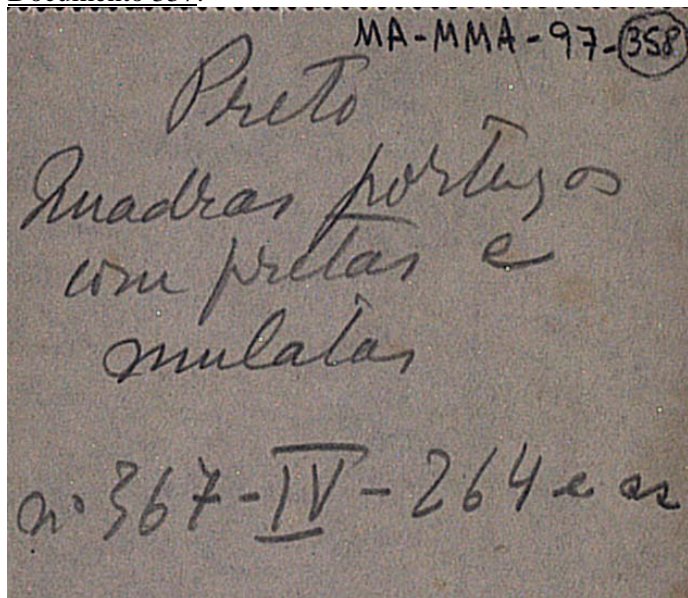 MA-MMA-97-358
Preto
Quadras portugas
com pretas e
mulatas
nº 367-IV-264 e as